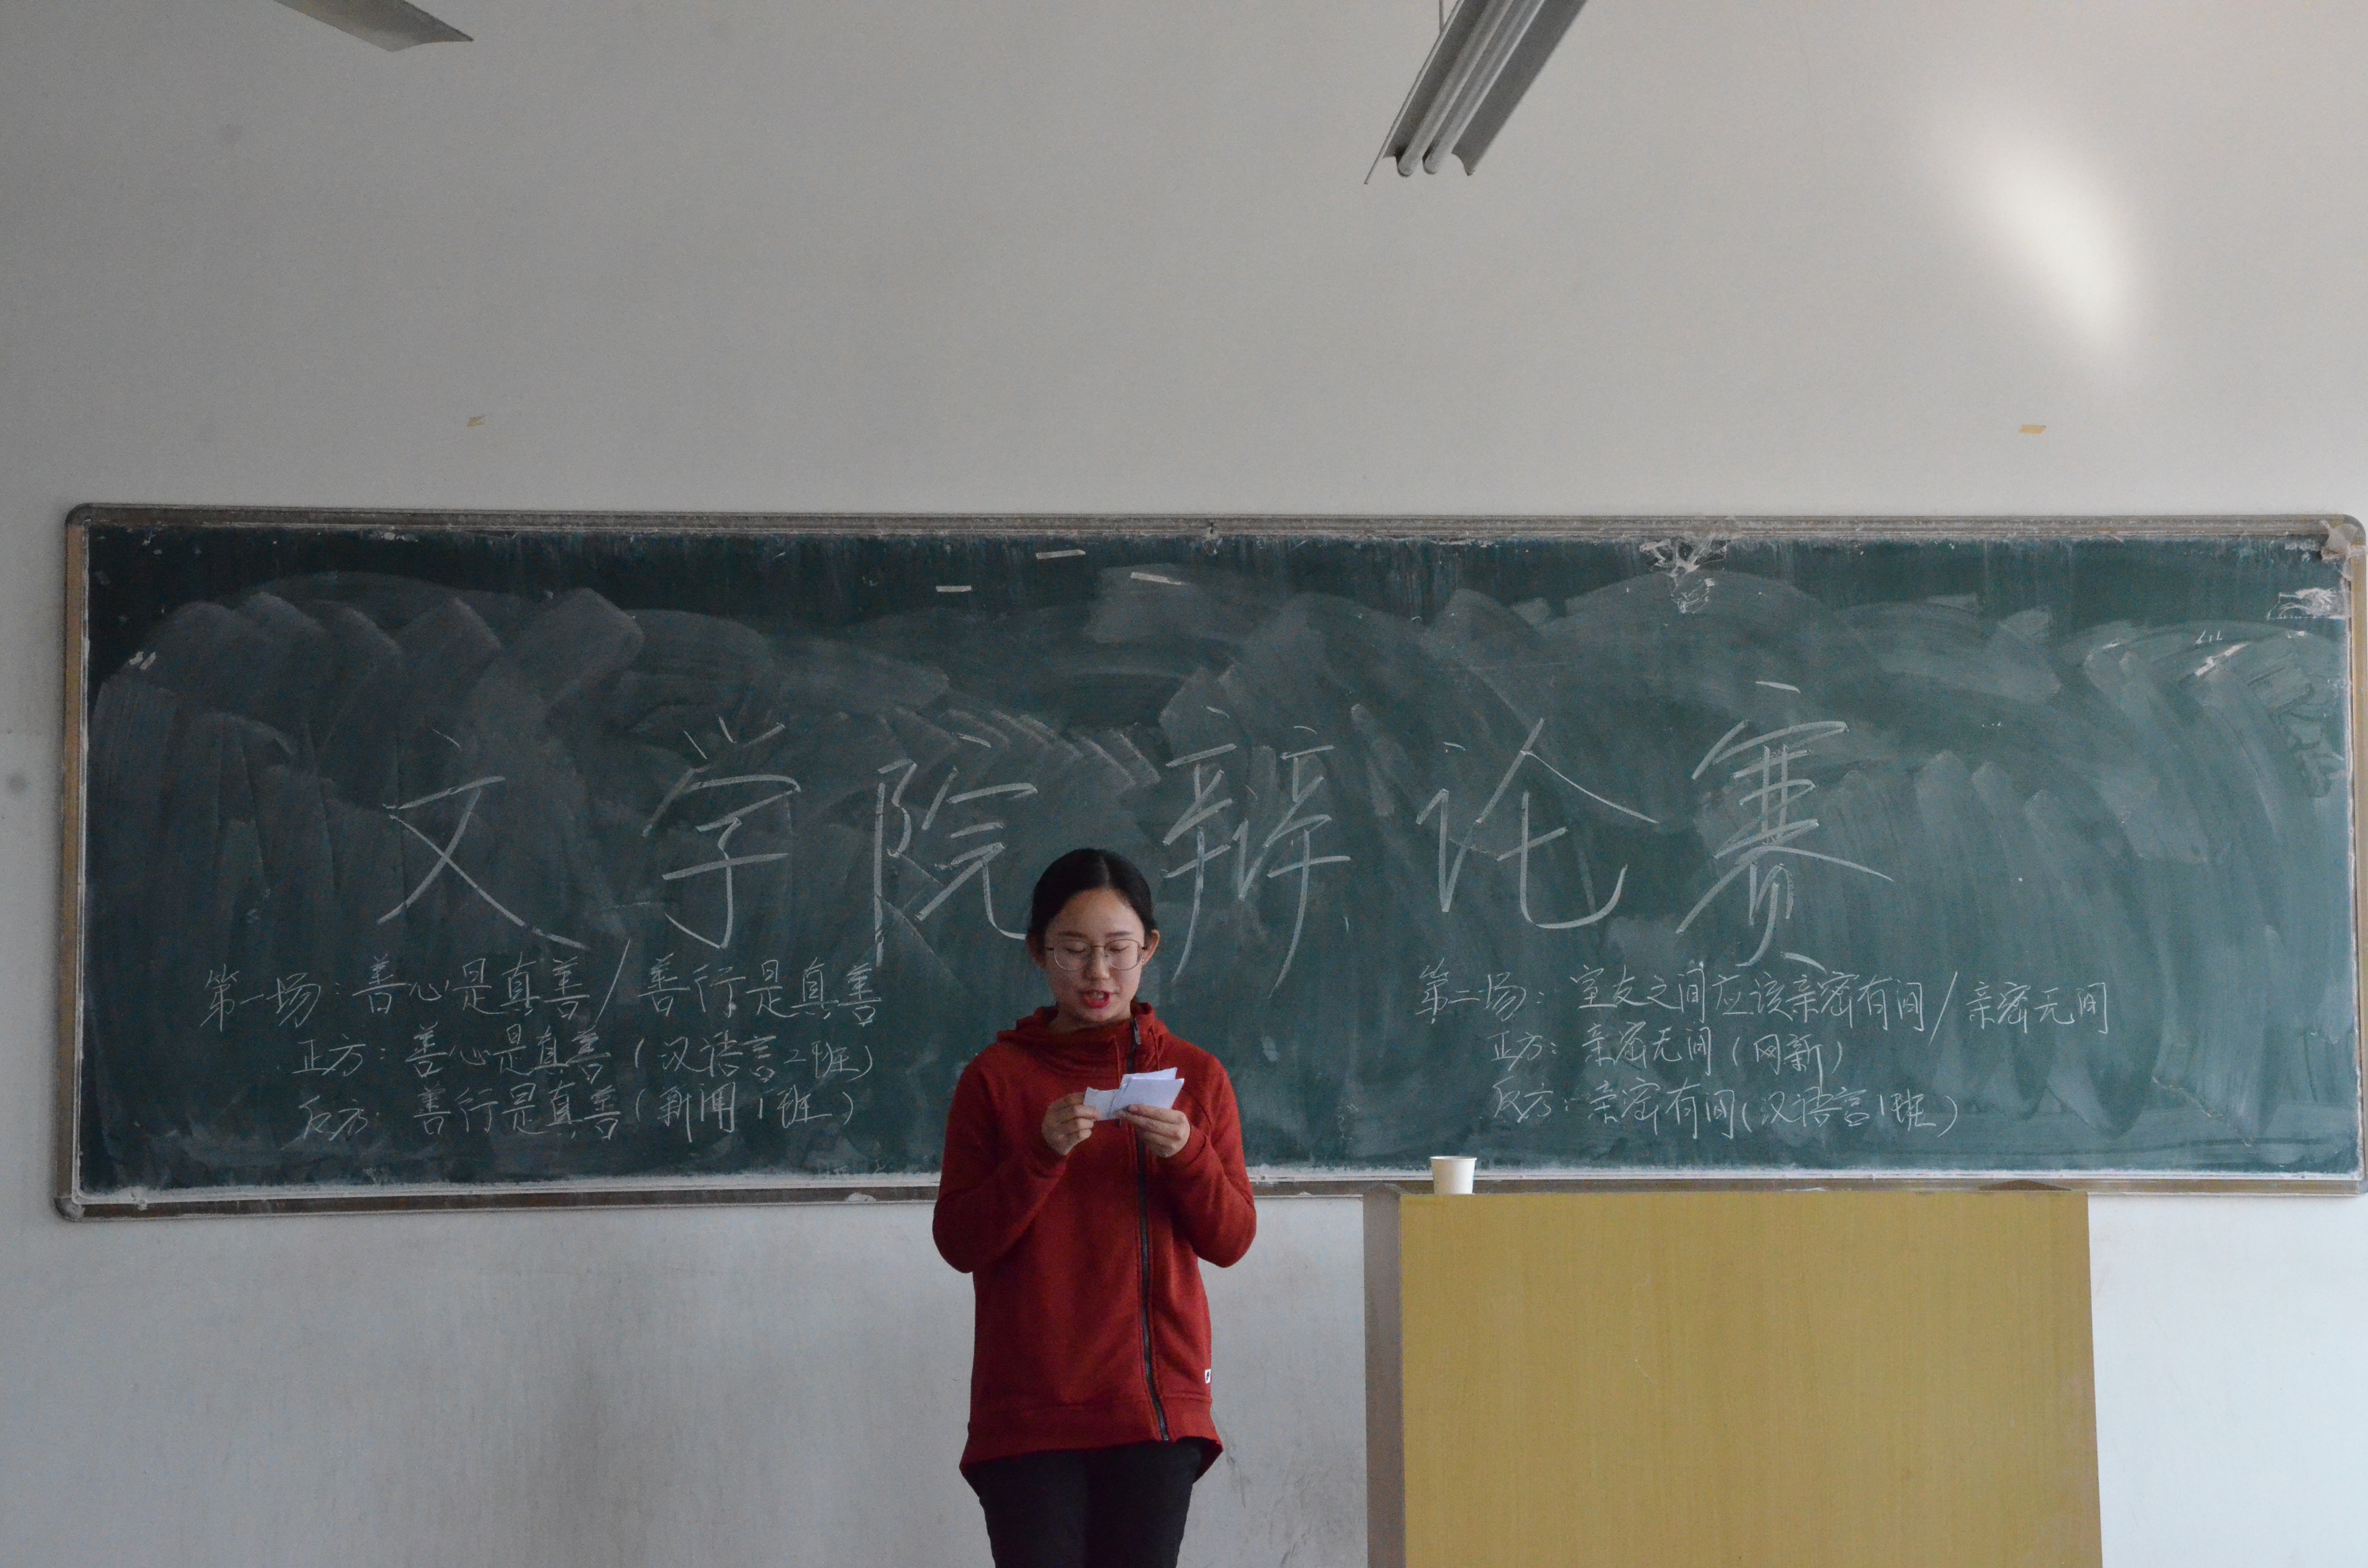 文学院辩论赛
第一场：善心是真善/善行是真善
正方：善心是真善（汉语言2班）
反方：善行是真善（新闻1班）
第二场：室友之间应该亲密有间/亲密无间
正方：亲密无间（网新）
反方：亲密有间（汉语言1班）